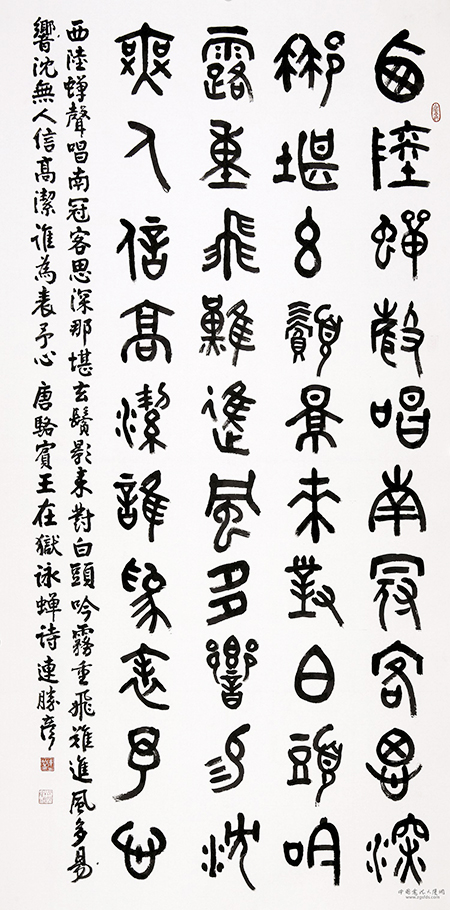 西陸蟬聲唱南冠客思深
那堪玄鬢影來對白頭吟
露重飛難進風多響易沈
無人信高潔誰為表予心
西陸蟬聲唱南冠客思深那堪玄鬢影来對白頭吟霧重飛難進風多易
響沈無人信高潔誰為表予心 唐駱賓王在獄咏蟬詩 連勝彥